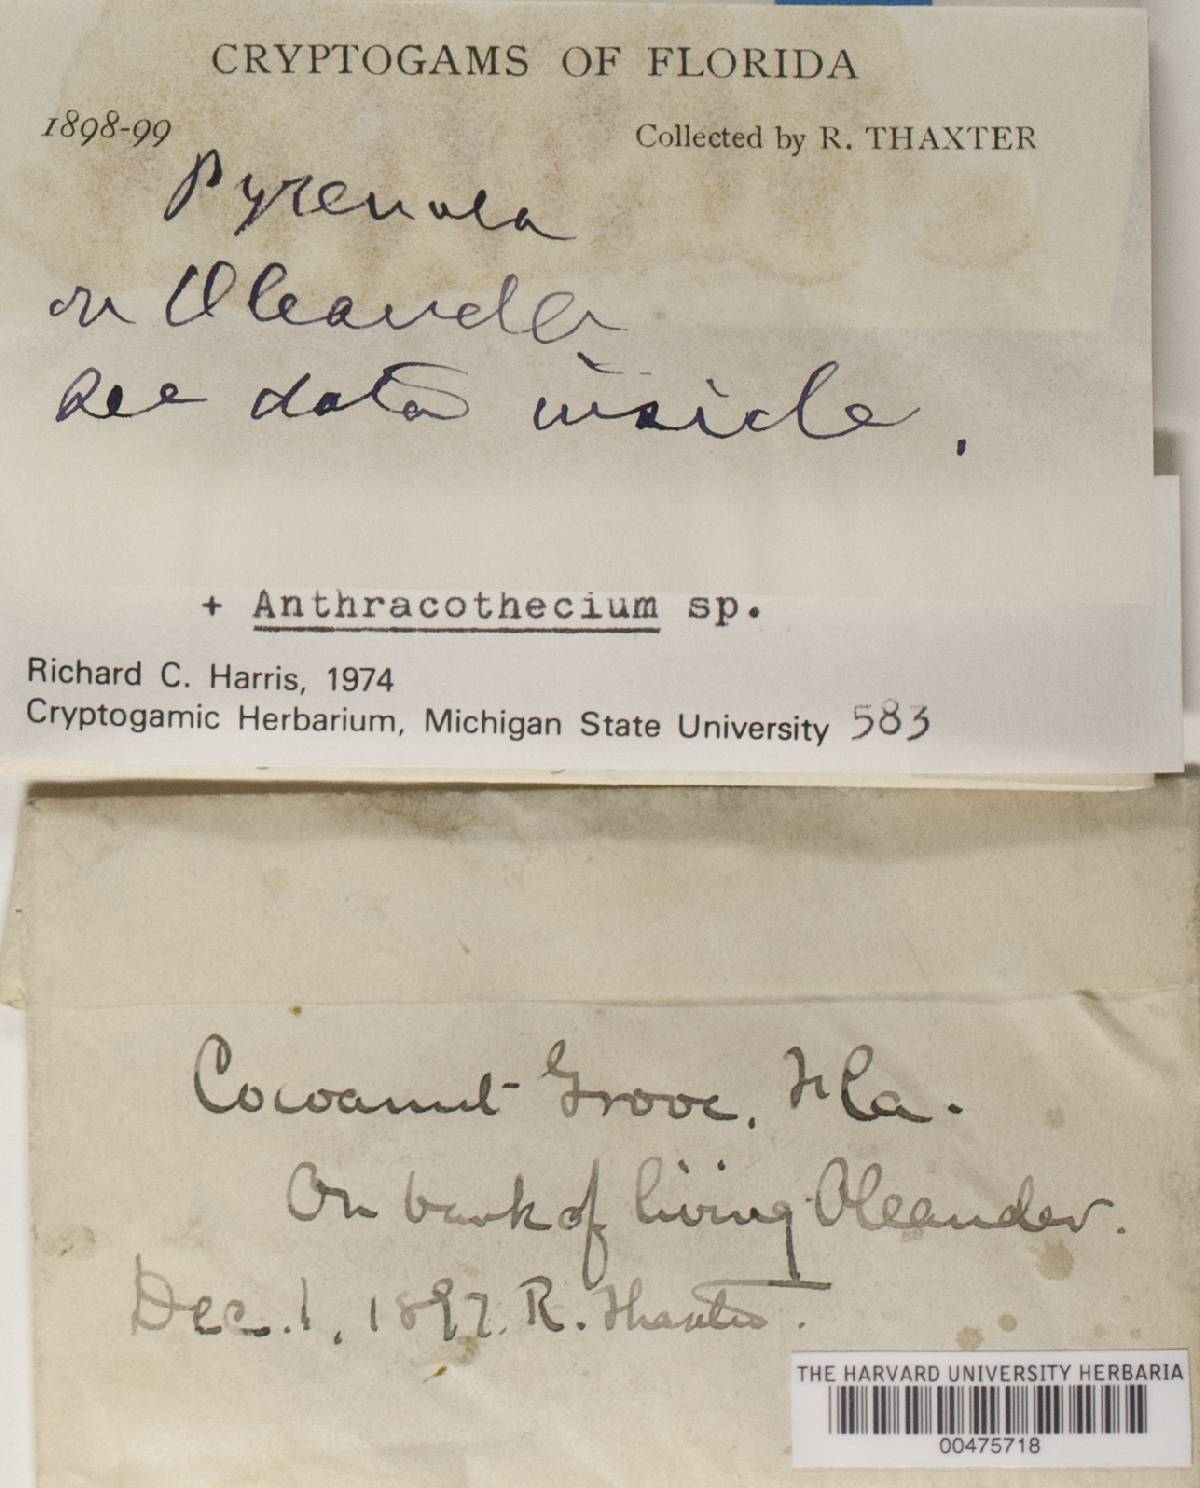 CRYPTOGAMS OF FLORIDA
1898-99
Collected by R. THAXTER
Pyrenula
on Oleander
See data inside.
+ Anthracothecium sp.
Richard C. Harris, 1974
Cryptogamic Herbarium, Michigan State University 583
Cocoanut Grove, Fla.
On bark of living Oleander.
Dec. 1, 1897. R. Thaxter.
THE HARVARD UNIVERSITY HERBARIA
00475718